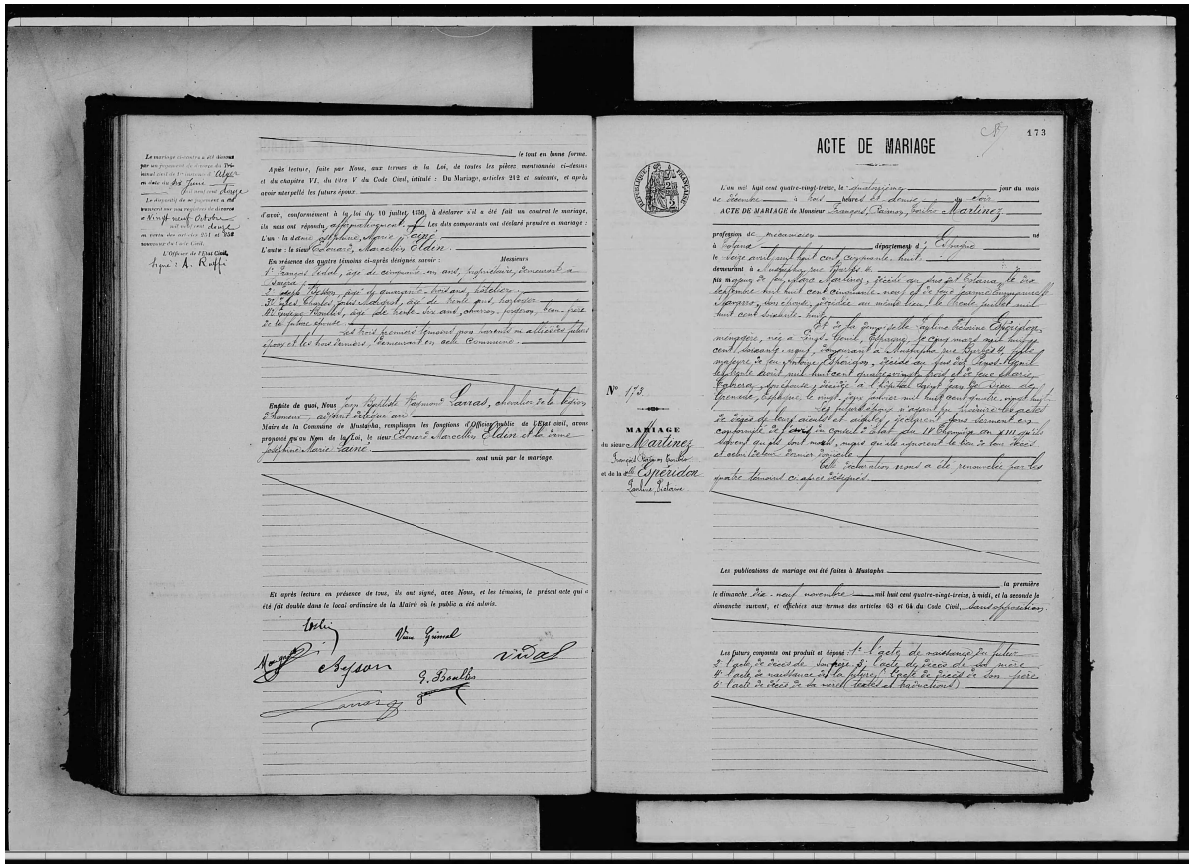 Le mariage ci-contre a été dissous
par un jugement de divorce du Tri-
bunal civil de 1re instance d'Alger
en date du dix Juin
mil neuf cent douze
Le dispositif de ce jugement a été
transcrit sur nos registres de divorce
le Vingt neuf Octobre
mil neuf cent douze
en vertu des articles 251 et 252
nouveaux du Code Civil.
L'Officier de l'Etat Civil,
Signé : A. Raffi
le tout en bonne forme.
Après lecture, faite par Nous, aux termes de la Loi, de toutes les pièces mentionnées ci-dessus
et du chapitre VI, du titre V du Code Civil, intitulé : Du Mariage, articles 212 et suivants, et après
avoir interpellé les futurs époux
d'avoir, conformément à la loi du 10 juillet 1850, à déclarer s'il a été fait un contrat de mariage,
ils nous ont répondu affirmativement. Les dits comparants ont déclaré prendre en mariage :
L'un : la dame Joséphine Marie Lainé
L'autre : le sieur Edouard Marcellin Eldin.
En présence des quatre témoins ci-après désignés savoir : Messieurs
1° François Vidal, âgé de cinquante un ans, propriétaire, demeurant à
2° Joseph Besson, âgé de quarante trois ans, hôtelier
3° Jules Charles Louis âgé de trente ans, horloger
4° Eugène Boulles, âgé de trente six ans, charron, forgeron, beau-frère
de la future épouse
Les trois premiers témoins non parents ni alliés des futurs
époux et les trois derniers, demeurant en cette Commune.
Ensuite de quoi, Nous Jean Baptiste Raymond Larras, chevalier de la Légion
d'honneur, adjoint délégué au
Maire de la Commune de Mustapha, remplissant les fonctions d'Officier public de l'Etat civil, avons
prononcé qu'au Nom de la Loi, le sieur Edouard Marcellin Eldin et la dame
Joséphine Marie Lainé
sont unis par le mariage.
Et après lecture en présence de tous, ils ont signé, avec Nous, et les témoins, le présent acte qui a
été fait double dans le local ordinaire de la Mairie où le public a été admis.
Eldin
Vve Grimal
Besson
Vidal
G. Boulles
Larras
173
ACTE DE MARIAGE
RÉPUBLIQUE FRANÇAISE
L'an mil huit cent quatre-vingt-treize, le quatorzième jour du mois
de décembre à trois heures et demie du soir
ACTE DE MARIAGE de Monsieur François, Ramon, Toribio Martinez
profession de mécanicien né
à Totana département d'Espagne
le seize avril mil huit cent cinquante huit
demeurant à Mustapha, rue Barbès 4
fils majeur de feu Marc Martinez, décédé au dit Totana, le dix
septembre mil huit cent cinquante neuf et de
Navarro, son épouse, décédée au même lieu, le trente juillet mil
huit cent soixante huit
Et de la demoiselle Pauline Victorine Espéridon
ménagère, née à Espagne, le cinq mars mil huit
cent soixante neuf, demeurant à Mustapha rue Barbès 4, fille
majeure de feu Antoine Espéridon, décédé au dit
le trente avril mil huit cent quatre vingt trois et de Marie
Cabrera, son épouse, décédée à l'hôpital Saint Jean de Dieu de
Grenade, Espagne, le vingt deux janvier mil huit cent quatre vingt
Les futurs époux n'ayant pu produire les actes
de décès de leurs aïeuls et aïeules, déclarent sous serment en
conformité de l'avis du Conseil d'Etat du 4 Thermidor an XIII qu'ils
savent qu'ils sont morts, mais qu'ils ignorent le lieu de leur décès
et celui de leur dernier domicile
Cette déclaration nous a été renouvelée par les
quatre témoins ci-après désignés.
N° 173
MARIAGE
du sieur Martinez
François Ramon Toribio
et de la dlle Espéridon
Pauline Victorine
Les publications de mariage ont été faites à Mustapha
la première
le dimanche dix neuf novembre mil huit cent quatre-vingt-treize, à midi, et la seconde le
dimanche suivant, et affichées aux termes des articles 63 et 64 du Code Civil, sans opposition.
Les futurs conjoints ont produit et déposé : 1° l'acte de naissance du futur
2° l'acte de décès de son père 3° l'acte de décès de sa mère
4° l'acte de naissance de la future l'acte de décès de son père
6° l'acte de décès de sa mère (textes et traductions)